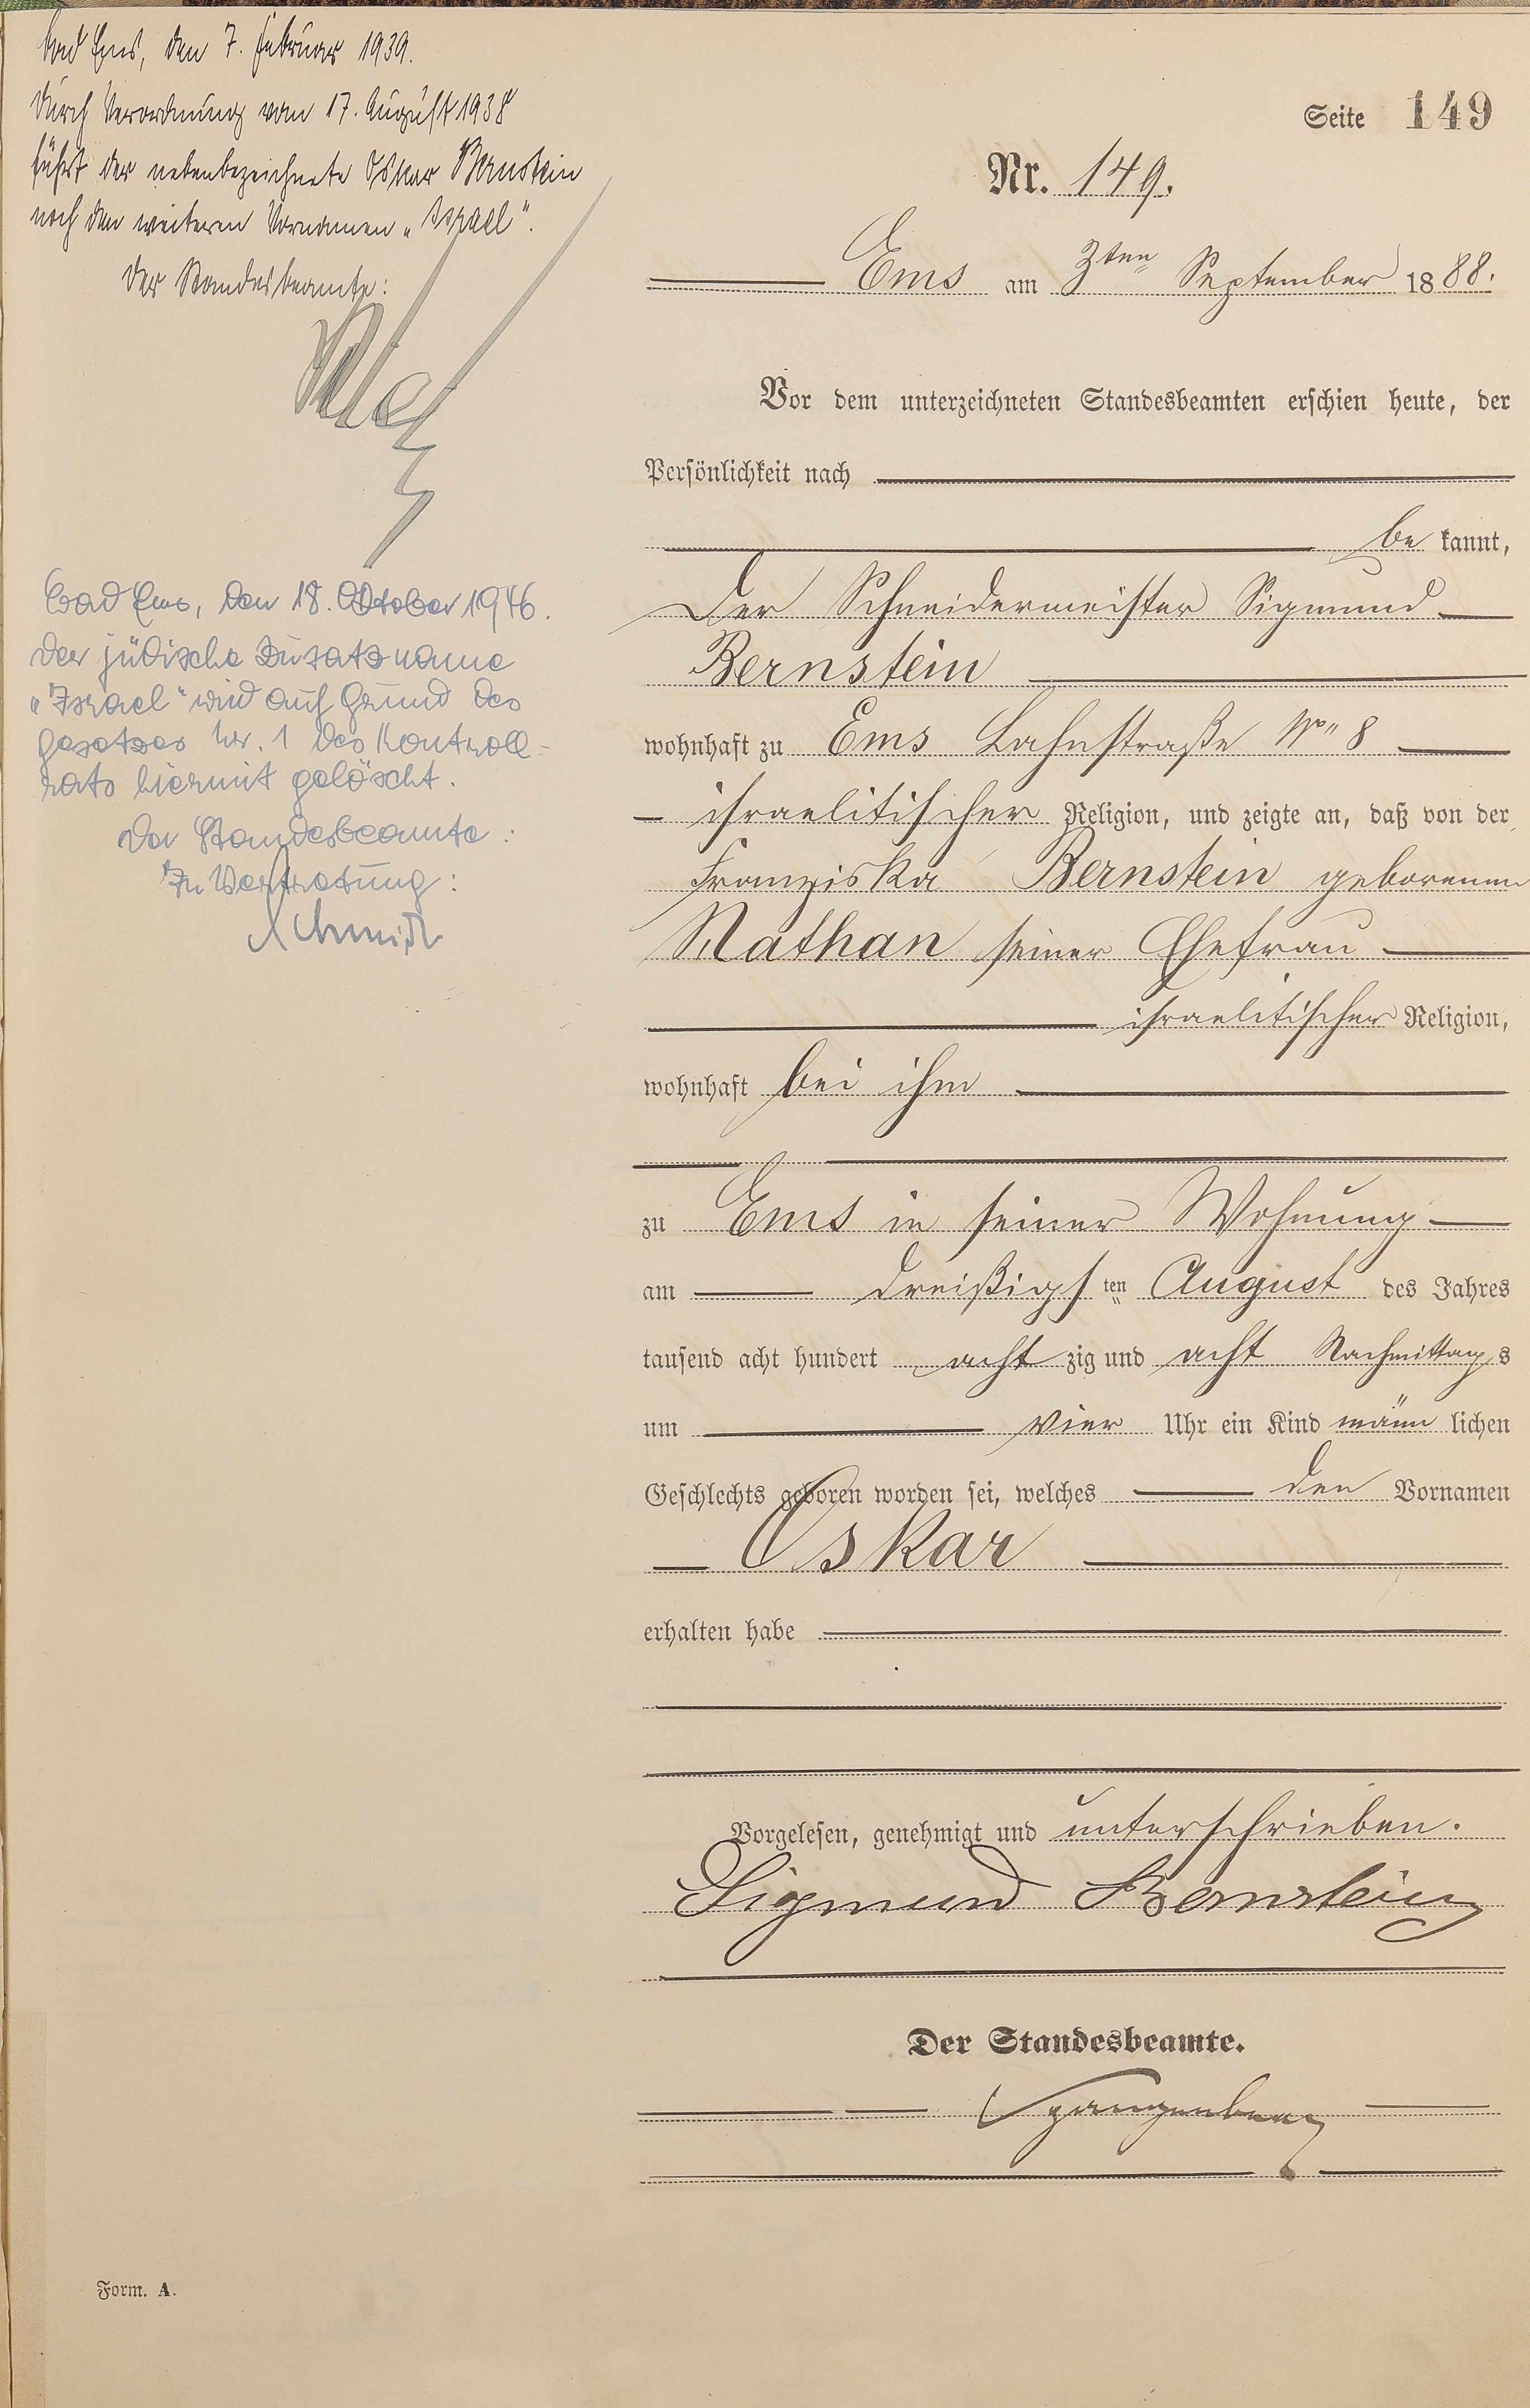 Bad Ems, den 7. Februar 1939.
Durch Verordnung vom 17. August 1938
führt der nebenbezeichnete Oskar Bernstein
noch den weiteren Vornamen „Israel“.
Der Standesbeamte:
Bad Ems, den 18. Oktober 1946.
Der jüdische Zusatzname
„Israel“ wird auf Grund des
Gesetzes Nr. 1 des Kontroll-
rats hiermit gelöscht.
Der Standesbeamte:
In Vertretung:
Schmidt
Seite 149
Nr. 149.
Ems am 3ten September 1888.
Vor dem unterzeichneten Standesbeamten erschien heute, der
Persönlichkeit nach
be kannt,
Der Schneidermeister Sigmund
Bernstein
wohnhaft zu Ems Lahnstraße No 8
israelitischer Religion, und zeigte an, daß von der
Franziska Bernstein geborenen
Nathan seiner Ehefrau
israelitischer Religion,
wohnhaft bei ihm
zu Ems in seiner Wohnung
am dreißigs ten August des Jahres
tausend acht hundert acht zig und acht Nachmittags
um vier Uhr ein Kind männ lichen
Geschlechts geboren worden sei, welches den Vornamen
Oskar
erhalten habe
Vorgelesen, genehmigt und unterschrieben.
Sigmund Bernstein
Der Standesbeamte.
Spangenberg
Form. A.